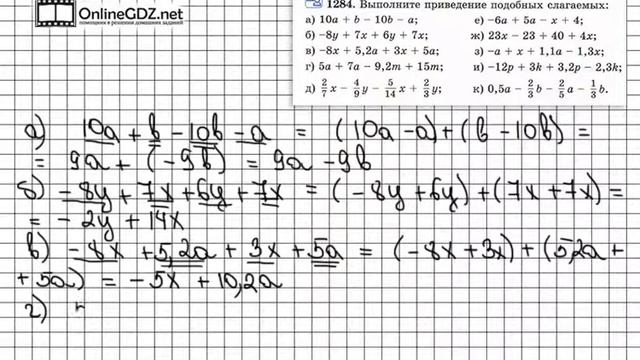 OnlineGDZ.net
помощник в решении домашних заданий
1284. Выполните приведение подобных слагаемых:
а) 10a + b − 10b − a;
б) −8y + 7x + 6y + 7x;
в) −8x + 5,2a + 3x + 5a;
г) 5a + 7a − 9,2m + 15m;
д) 2/7 x − 4/9 y − 5/14 x + 2/3 y;
е) −6a + 5a − x + 4;
ж) 23x − 23 + 40 + 4x;
з) −a + x + 1,1a − 1,3x;
и) −12p + 3k + 3,2p − 2,3k;
к) 0,5a − 2/3 b − 2/5 a − 1/3 b.
а) 10a + b − 10b − a = (10a − a) + (b − 10b) =
= 9a + (−9b) = 9a − 9b
б) −8y + 7x + 6y + 7x = (−8y + 6y) + (7x + 7x) =
= −2y + 14x
в) −8x + 5,2a + 3x + 5a = (−8x + 3x) + (5,2a +
+ 5a) = −5x + 10,2a
г)